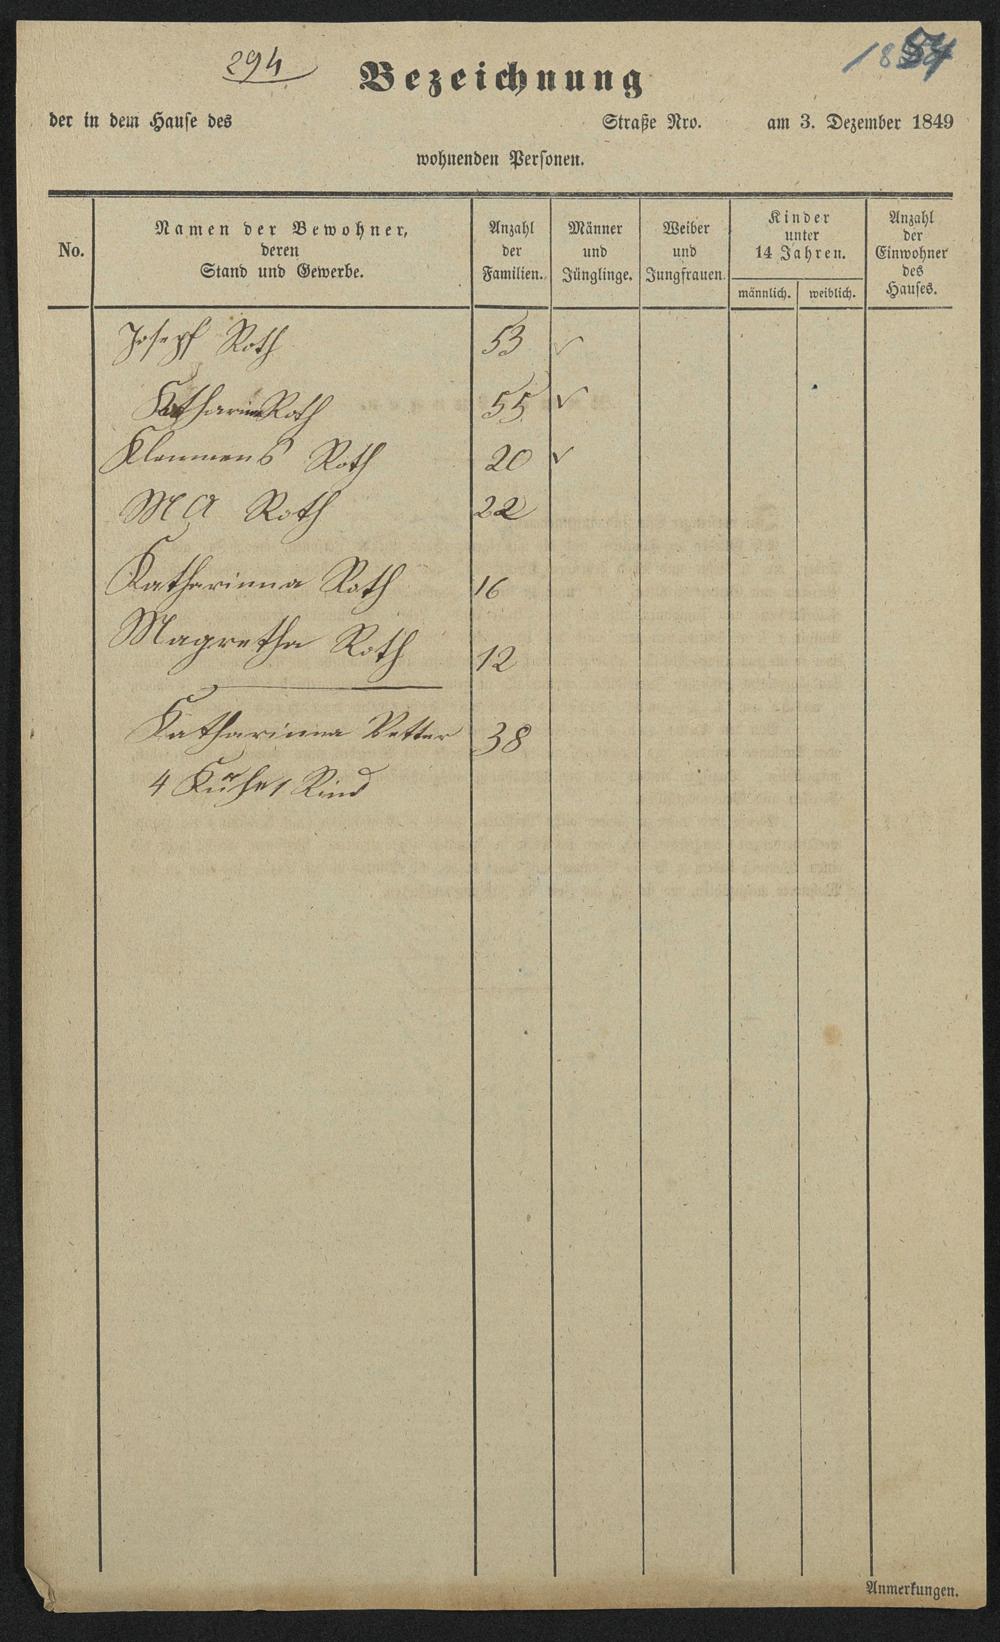 294
Bezeichnung
der in dem Hause des Straße Nro. am 3. Dezember 1849
wohnenden Personen.
No.
Namen der Bewohner,
deren
Stand und Gewerbe.
Anzahl
der
Familien.
Männer
und
Jünglinge.
Weiber
und
Jungfrauen.
Kinder
unter
14 Jahren.
männlich.
weiblich.
Anzahl
der
Einwohner
des
Hauses.
Joseph Roth 53 ✓
Katharina Roth 55 ✓
Klemmens Roth 20 ✓
MA Roth 22
Katharinna Roth 16
Magretha Roth 12
Katharinna Vetter 38
4 Kühe 1 Rind
Anmerkungen.